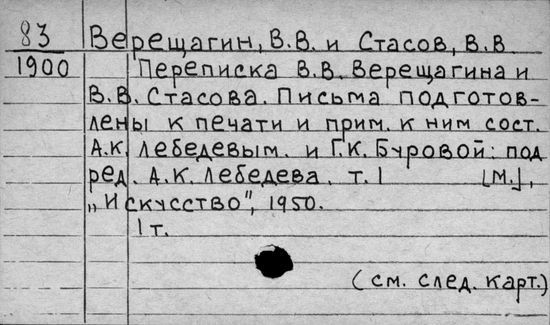 83 Верещагин, В.В. и Стасов, В.В
1900 Переписка В.В. Верещагина и
В.В. Стасова. Письма подготов-
лены к печати и прим. к ним сост.
А.К. Лебедевым. и Г.К. Буровой: под
ред. А.К. Лебедева. т. 1 [м.],
„Искусство", 1950.
1 т.
(см. след. карт.)